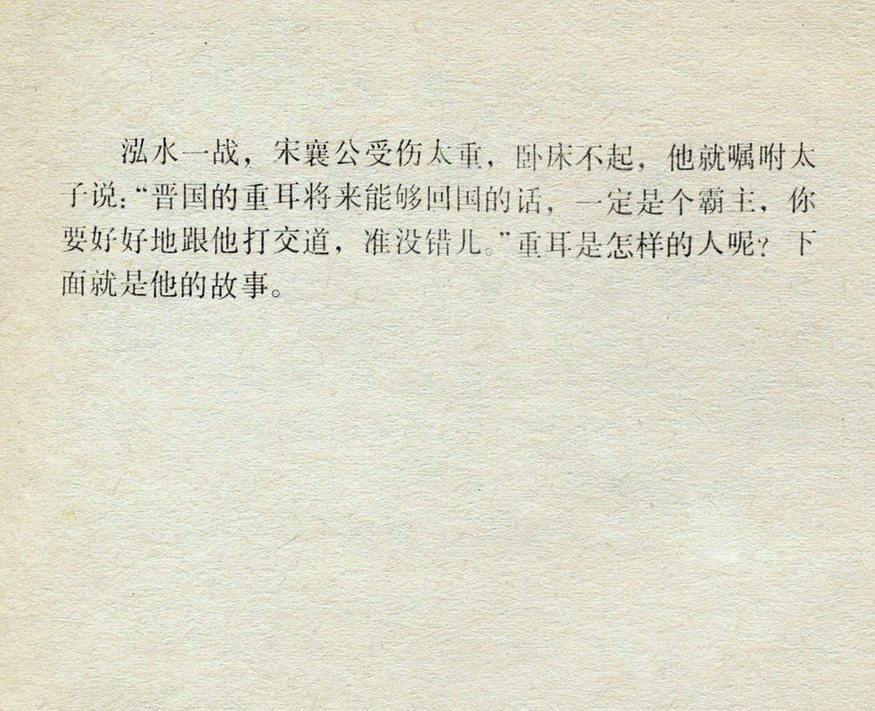 泓水一战，宋襄公受伤太重，卧床不起，他就嘱咐太
子说：“晋国的重耳将来能够回国的话，一定是个霸主，你
要好好地跟他打交道，准没错儿。”重耳是怎样的人呢？下
面就是他的故事。